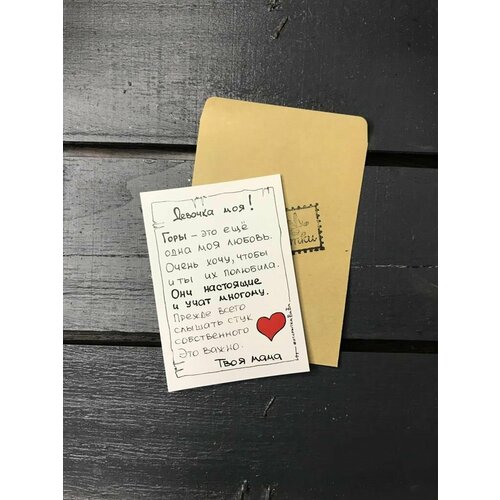 Девочка моя!
Горы – это ещё
одна моя любовь.
Очень хочу, чтобы
и ты их полюбила.
Они настоящие
и учат многому.
Прежде всего
слышать стук
собственного
Это важно.
Твоя мама